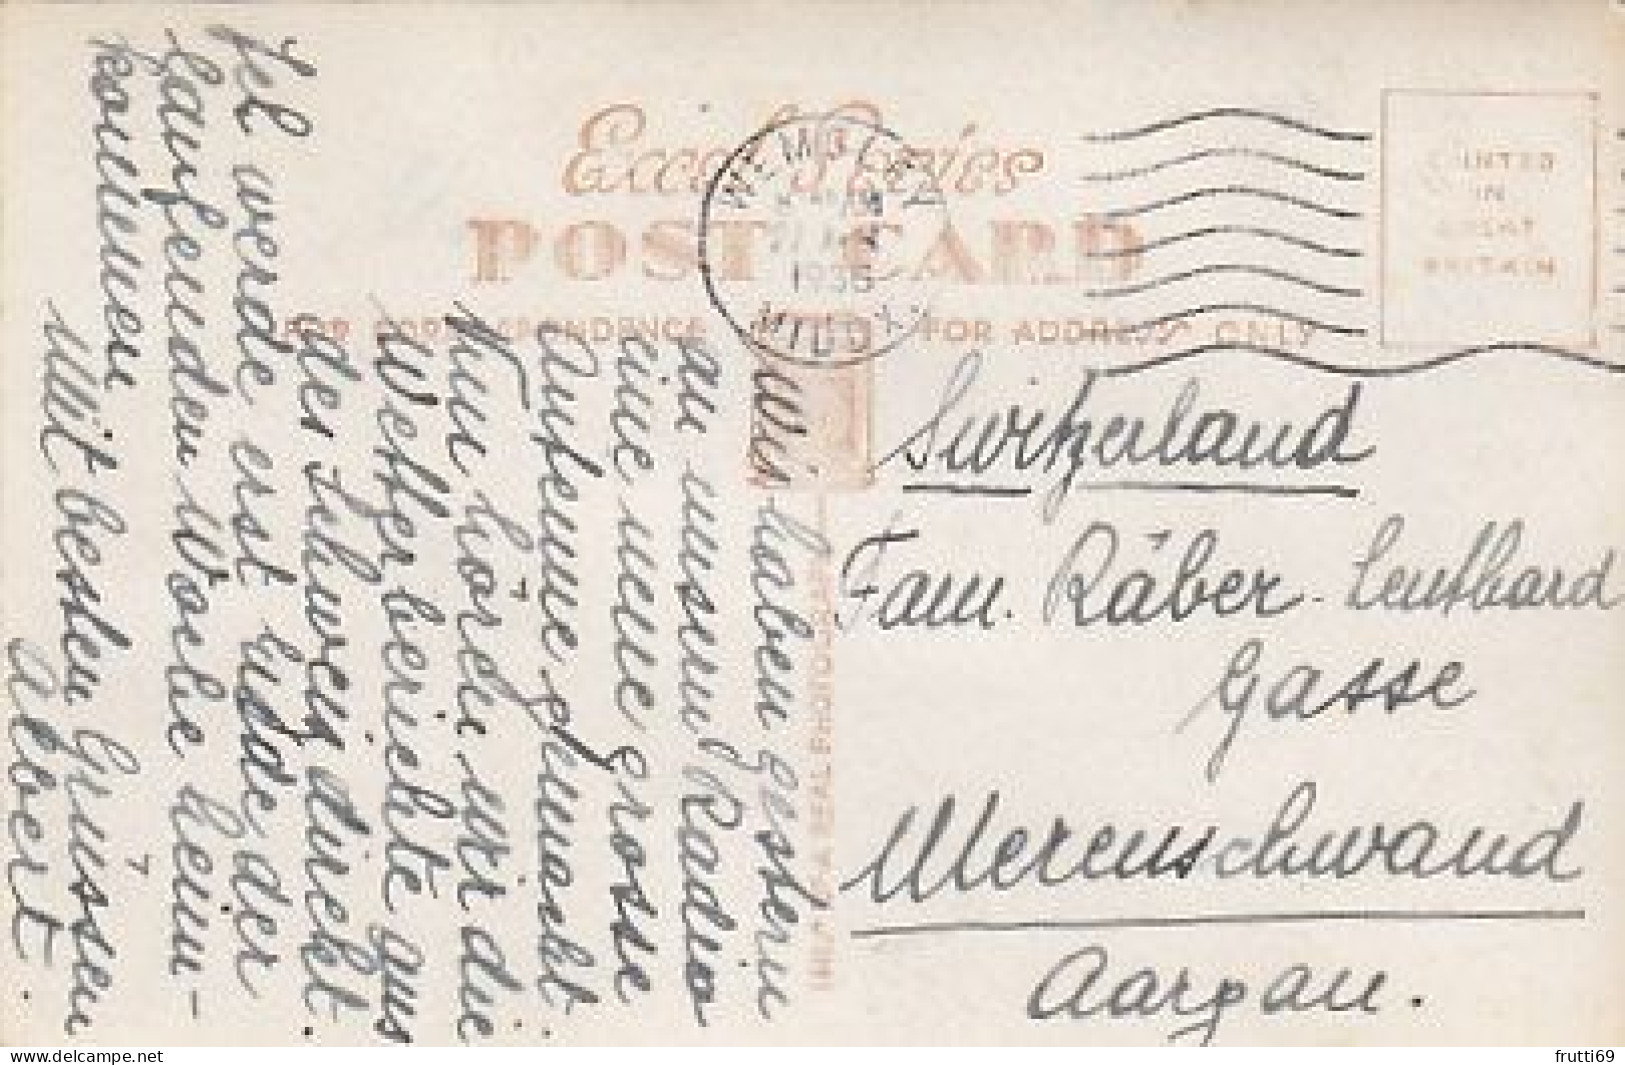 Excel Series
POST CARD
FOR CORRESPONDENCE
FOR ADDRESS ONLY
WEMBLEY
1935
MIDDX
PRINTED
IN
GREAT
BRITAIN
A REAL PHOTOGRAPH
Wir haben gestern
an unserm Radio
eine neue grosse
Antenne gemacht.
Nun hören wir die
Wetterberichte aus
der Schweiz direkt.
Ich werde erst Ende der
laufenden Woche heim-
kommen
Mit besten Grüssen
Albert.
Switzerland
Fam. Räber-Leuthard
Gasse
Merenschwand
Aargau.
www.delcampe.net
frutti69